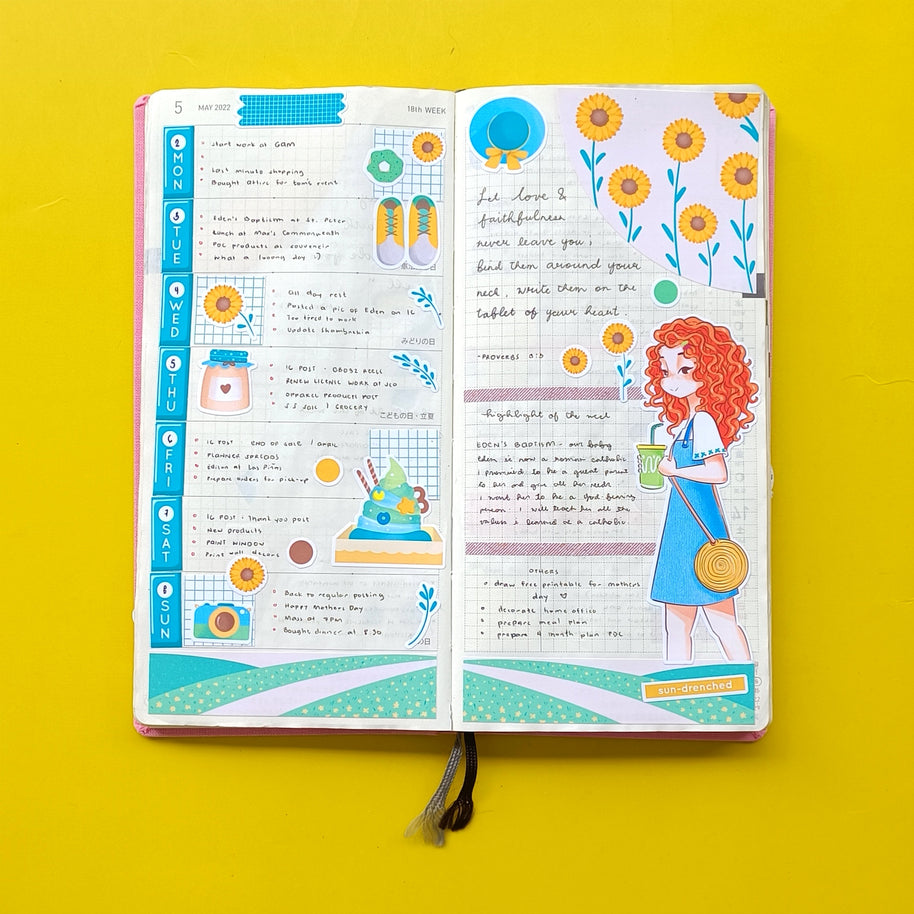 5 MAY 2022 18th WEEK
2 MON
Start work at 6am
Last minute shopping
Bought attire for tom's event
3 TUE
Eden's Baptism at St. Peter
Lunch at Max's Commonwealth
POC products as souvenir
What a loving day :)
4 WED
All day rest
Posted a pic of Eden on IG
Too tired to work
Update
みどりの日
5 THU
IG POST - OBOS2 REEL
RENEW LICENSE WORK at LTO
APPAREL PRODUCTS POST
S.S SALE / GROCERY
こどもの日・立夏
6 FRI
IG POST END OF SALE / APRIL
PLANNER SPREADS
Edision at Las Piñas
Prepare orders for pick-up
7 SAT
IG POST - Thank you post
New products
PAINT WINDOW
Print wall decors
8 SUN
Back to regular posting
Happy Mothers Day
Mass at 7PM
Bought dinner at 8:30
の日
Let love &
faithfulness
never leave you;
bind them around your
neck, write them on the
tablet of your heart.
-PROVERBS 3:3
highlight of the week
EDEN'S BAPTISM - our baby
Eden is now a roman catholic.
I promised to be a great parent
to her and give all her needs.
I want her to be a God fearing
person. I will teach her all the
values I learned as a catholic.
OTHERS
draw free printable for mothers
day
decorate home office
prepare meal plan
prepare 4 month plan POC
sun-drenched